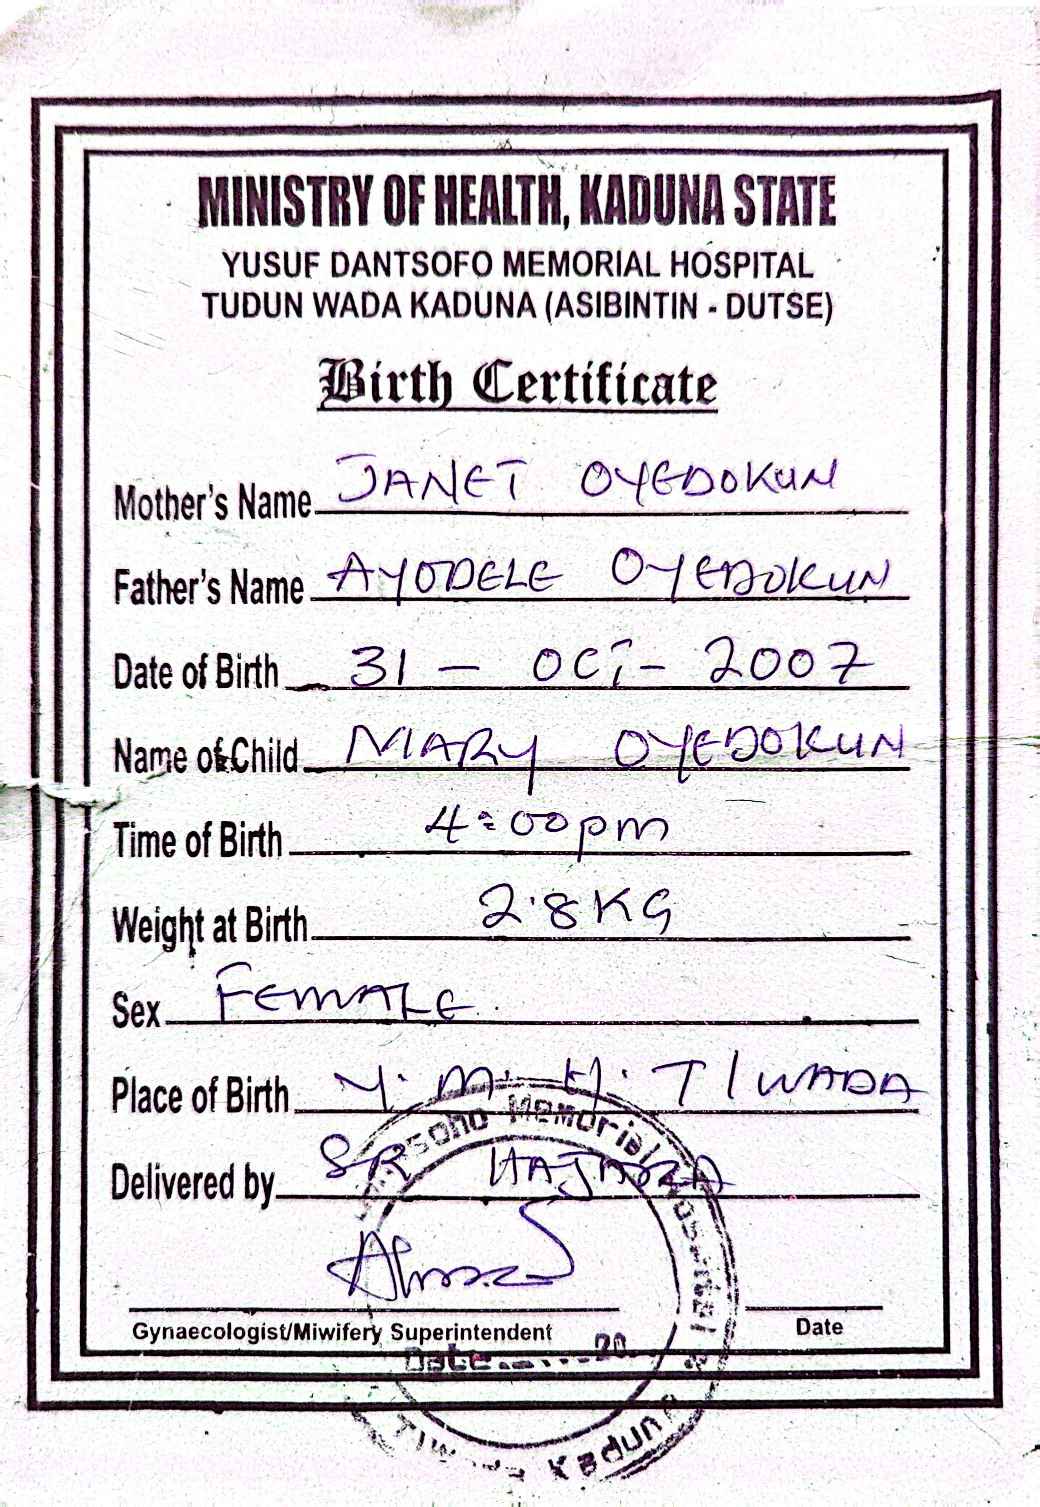 MINISTRY OF HEALTH, KADUNA STATE
YUSUF DANTSOFO MEMORIAL HOSPITAL
TUDUN WADA KADUNA (ASIBINTIN - DUTSE)
Birth Certificate
Mother's Name JANET OYEDOKUN
Father's Name AYODELE OYEDOKUN
Date of Birth 31 - OCT - 2007
Name of Child MARY OYEDOKUN
Time of Birth 4:00pm
Weight at Birth 2.8KG
Sex FEMALE
Place of Birth Y.M.H. T/WADA
Delivered by SR HAJARA
Gynaecologist/Miwifery Superintendent
Date
Memorial Hospital
Date.......20.
Kaduna